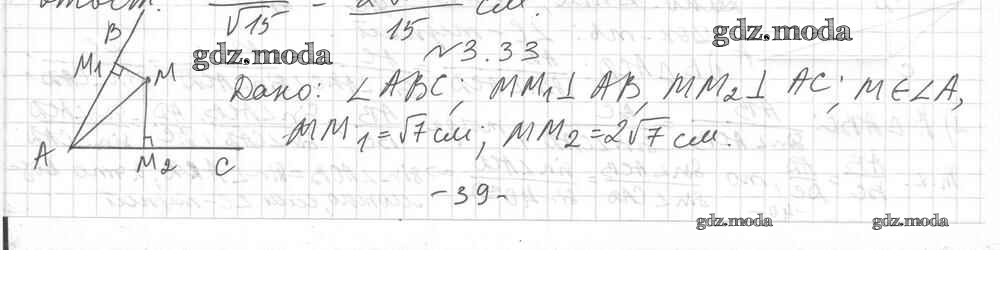 √15 15 см.
gdz.moda gdz.moda
№3.33
B
M₁ M
Дано: ∠ABC; MM₁⊥AB, MM₂⊥AC; M∈∠A,
MM₁=√7см; MM₂=2√7см.
A M₂ C
-39-
gdz.moda gdz.moda